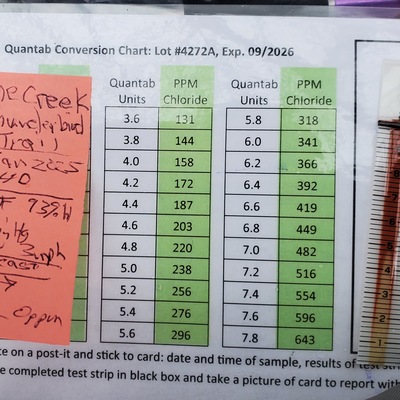 Quantab Conversion Chart: Lot #4272A, Exp. 09/2026
Quantab Units PPM Chloride Quantab Units PPM Chloride
3.6 131 5.8 318
3.8 144 6.0 341
4.0 158 6.2 366
4.2 172 6.4 392
4.4 187 6.6 419
4.6 203 6.8 449
4.8 220 7.0 482
5.0 238 7.2 516
5.2 256 7.4 554
5.4 276 7.6 596
5.6 296 7.8 643
Creek
Trail
2025
40
F 93% H
Hg
mph
on a post-it and stick to card: date and time of sample, results of test
completed test strip in black box and take a picture of card to report with